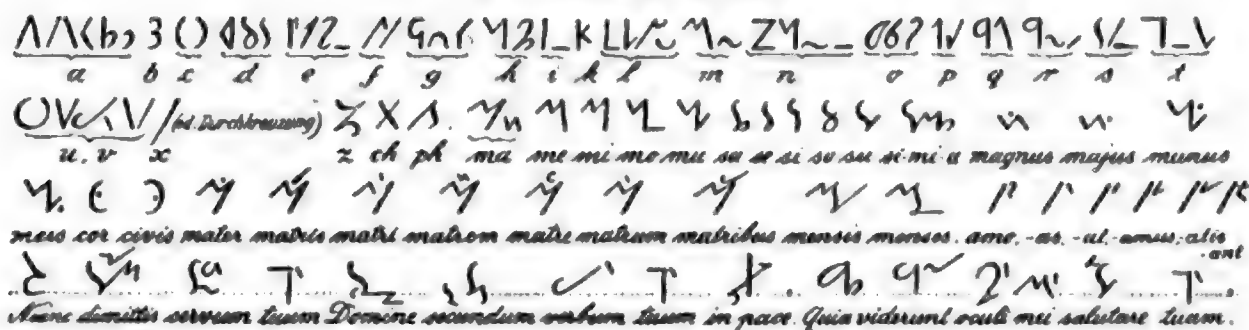 a b c d e f g h i k l m n o p q r s t
u, v x (od. Durchkreuzung) z ch ph ma me mi mo mu sa se si so su si-mi-a magnus majus munus
meus cor civis mater matris matri matrem matre matrum matribus mensis menses. amo, -as, -at, -amus, -atis -ant
Nunc dimittis servum tuum Domine secundum verbum tuum in pace. Quia viderunt oculi mei salutare tuum.